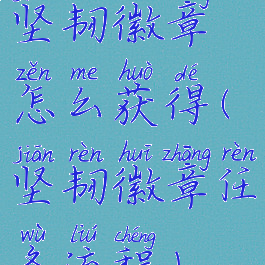 坚韧徽章
zěn me huò dé
怎么获得(
jiān rèn huī zhāng rèn
坚韧徽章任
wù liú chéng
务流程)